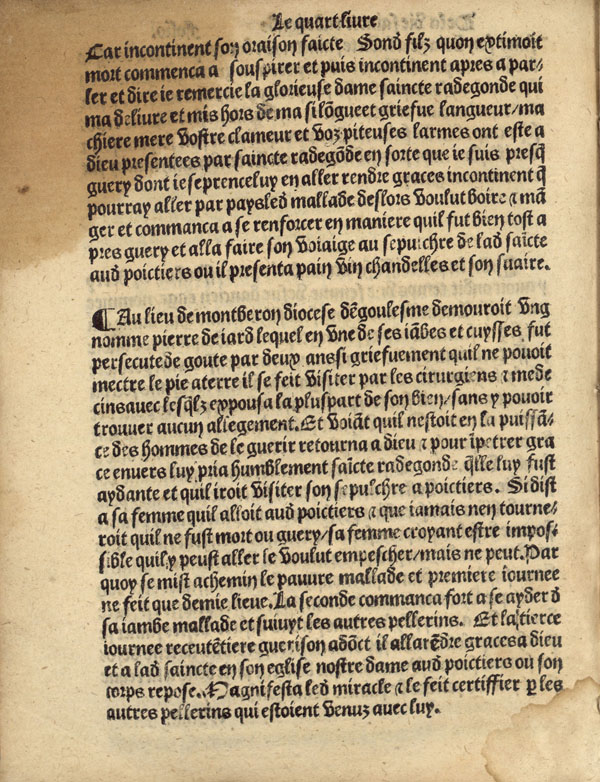 Le quart livre
Car incontinent son oraison faicte Sond filz quon extimoit
mort commenca a souspirer et puis incontinent apres a par-
ler et dire ie remercie la glorieuse dame saincte radegonde qui
ma delivre et mis hors de ma si lõgue et griefue langueur/ma
chiere mere vostre clameur et voz piteuses larmes ont este a
dieu presentees par saincte radegõde en sorte que ie suis presq̃
guery dont ie seprenceluy en aller rendre graces incontinent q̃
pourray aller par pays led mallade deslors voulut boire ⁊ mã
ger et commanca a se renforcer en maniere quil fut bien tost a
pres guery et alla faire son voiaige au sepulchre de lad saĩcte
aud poictiers ou il presenta pain vin chandelles et son suaire.
¶ Au lieu de montberon diocese dẽgoulesme demouroit vng
nomme pierre de iard lequel en vne de ses iãbes et cuysses fut
persecute de goute par deux ans si griefuement quil ne pouoit
mectre le pie a terre il se feit visiter par les cirurgiens ⁊ mede
cins avec lesq̃lz expousa la pluspart de son bien/sans y pouoir
trouver aucun allegement. Et voiãt quil nestoit en la puissã-
ce des hommes de le guerir retourna a dieu ⁊ pour ĩpetrer gra
ce envers luy pria humblement saĩcte radegonde q̃lle luy fust
aydante et quil iroit visiter son sepulchre a poictiers. Si dist
a sa femme quil alloit aud poictiers ⁊ que iamais nen tourne-
roit quil ne fust mort ou guery/sa femme croyant estre impos-
sible quil y peust aller le voulut empescher/mais ne peut. Par
quoy se mist a chemin le pauure mallade et premiere iournee
ne feit que demie lieue. La seconde commanca fort a se ayder d
sa iambe mallade et suiuyt les autres pellerins. Et la tierce
iournee receut ẽtiere guerison adõct il alla rẽdre graces a dieu
et a lad saincte en son eglise nostre dame aud poictiers ou son
corps repose. Magnifesta led miracle ⁊ le feit certiffier ꝑ les
autres pellerins qui estoient venuz avec luy.